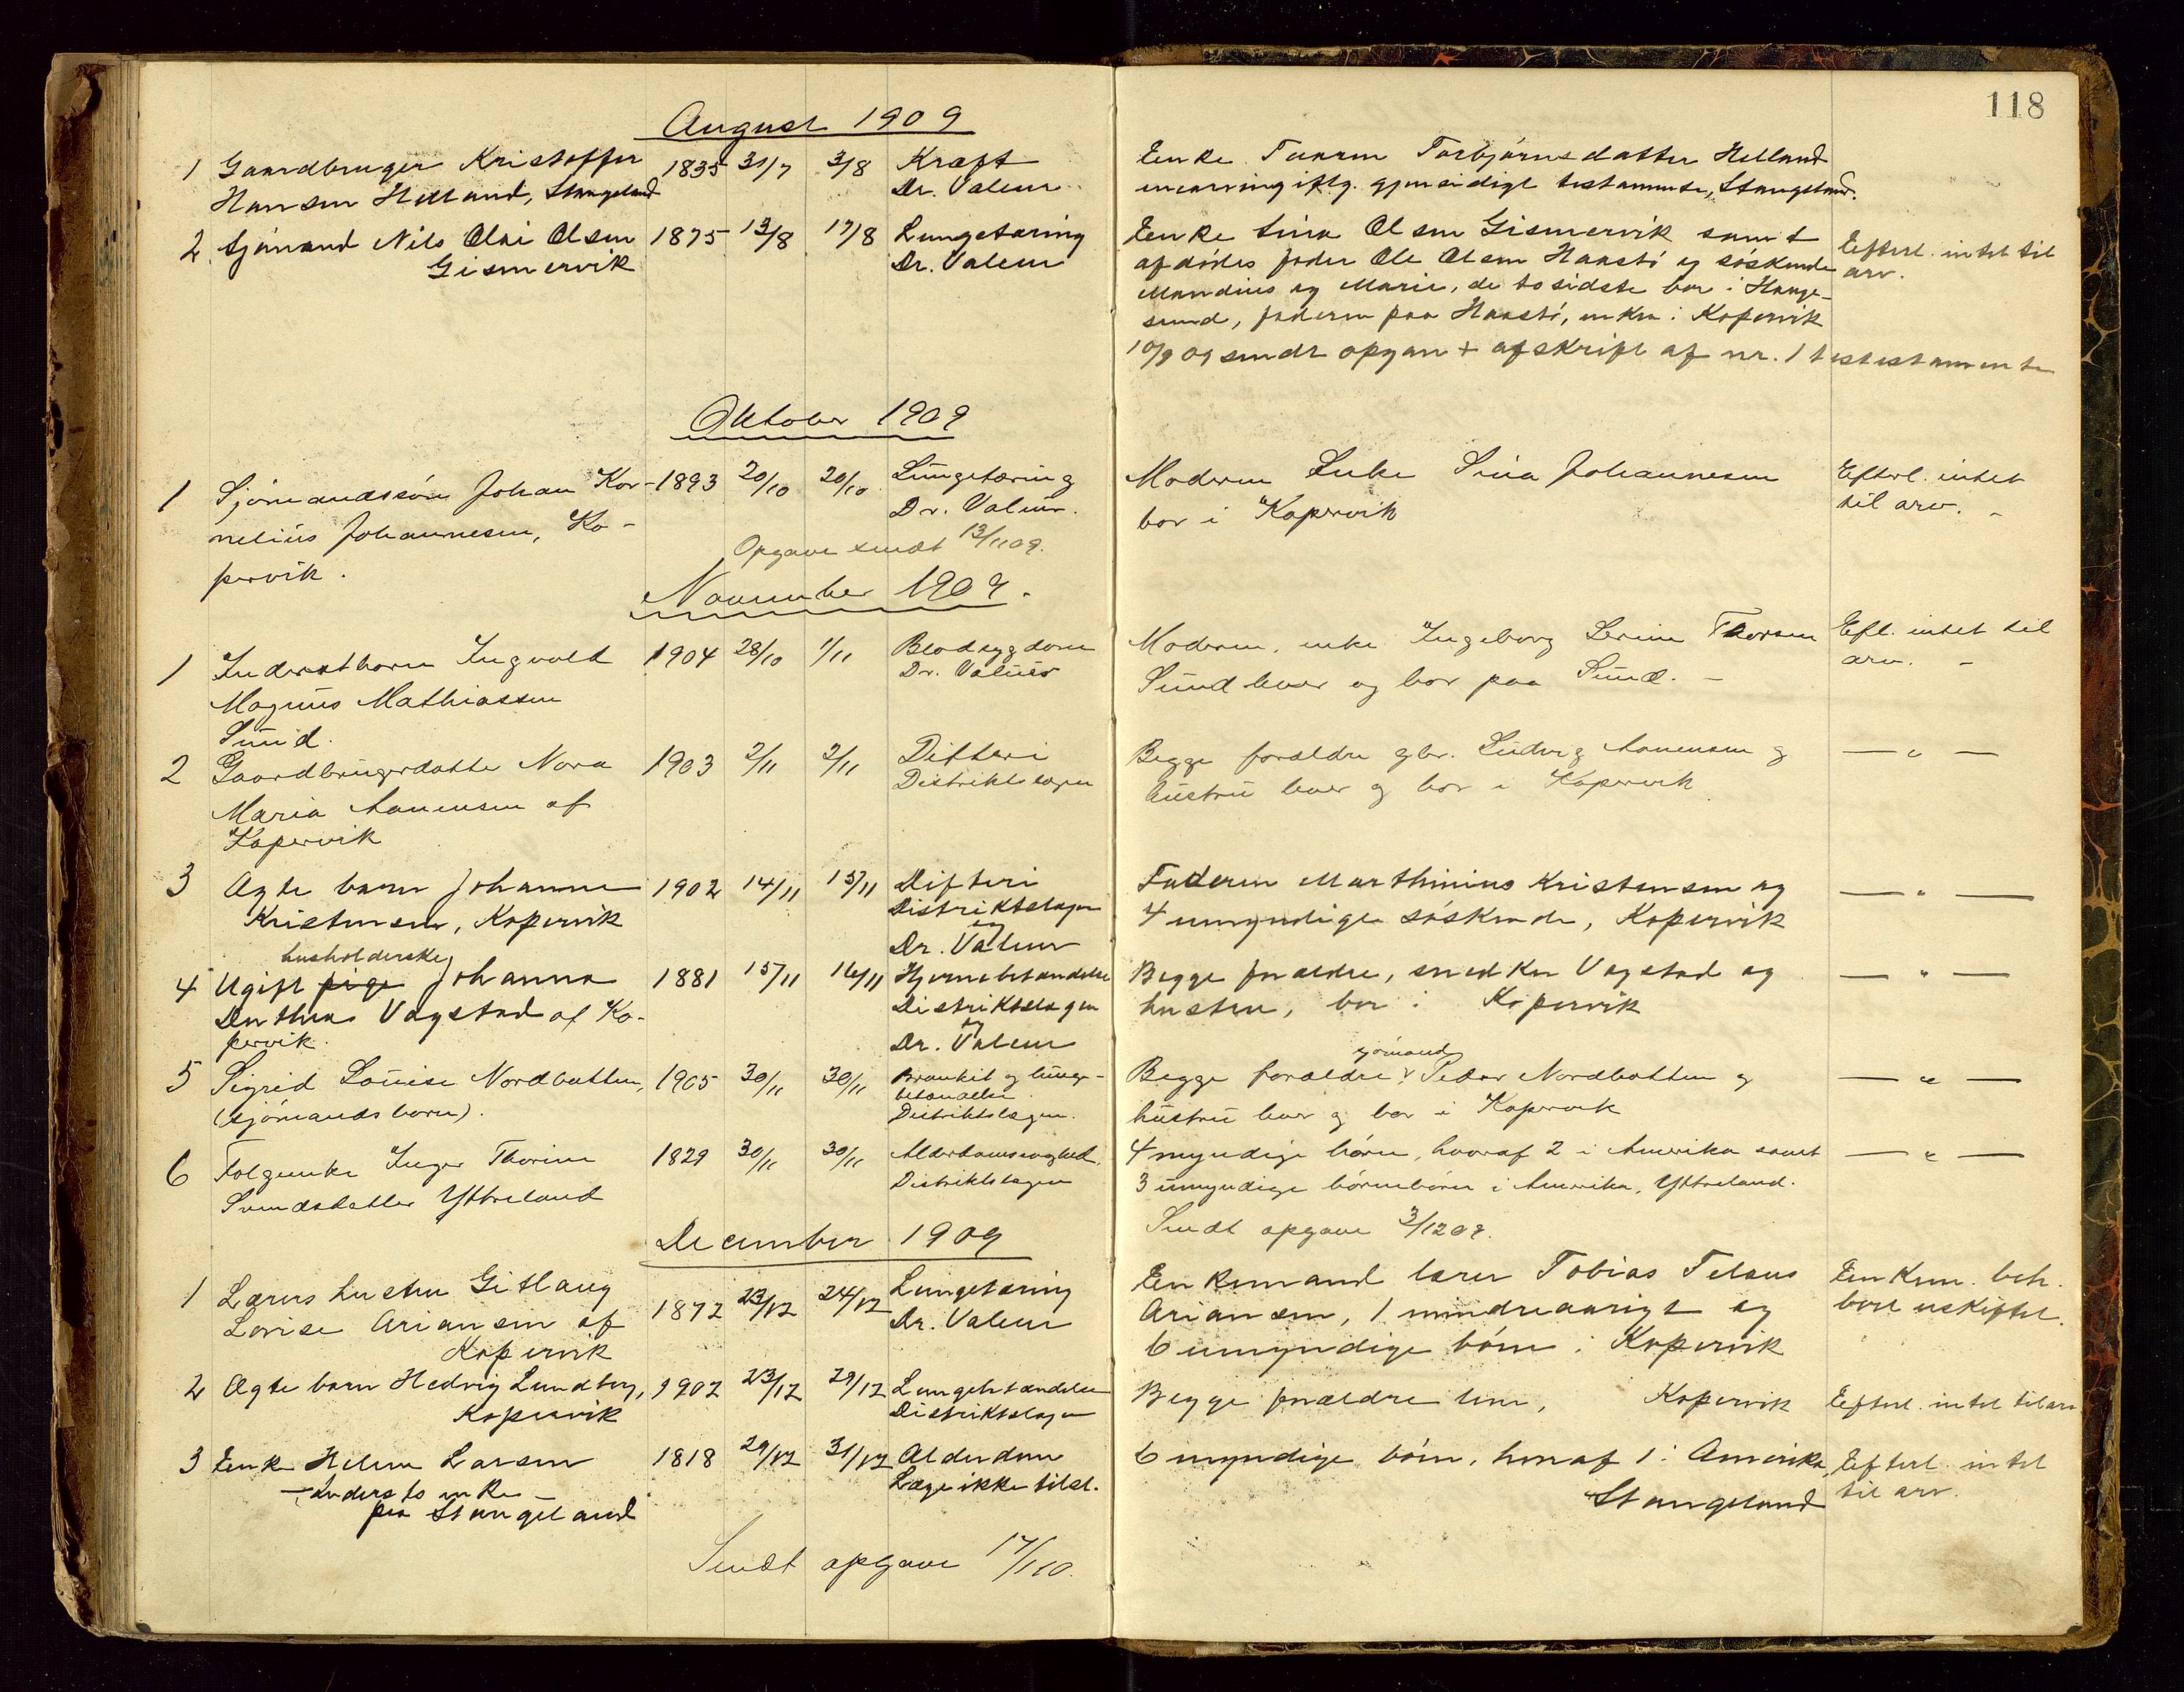 118
August 1909
1 Gaardbruger Kristoffer 1835 31/7 3/8 Kræft Enke Taaren Torbjørnsdatter Helland
Hansen Helland, Stangeland Dr. Valeur enearving iflg. gjensidigt testamente, Stangeland.
2 Sjømand Nils Olai Olsen 1875 13/8 17/8 Lungetæring Enke Sina Olsen Gismervik samt Efterl. intet til
Gismervik Dr. Valeur afdødes fader Ole Olsen Haastø og søskende arv.
Mandius og Marie, de to sidste bor i Hauge-
sund, faderen paa Haastø, enken i Kopervik
10/9 09 sendt opgave + afskrift af nr. 1 testestamente
Oktober 1909
1 Sjømandssøn Johan Kor- 1893 20/10 20/10 Lungetæring Moderen Enke Sina Johannesen Efterl. intet
nelius Johannesen, Ko- Dr. Valeur. bor i Kopervik til arv. -
pervik. Opgave sendt 13/11 09.
November 1909.
1 Inderstbarn Ingvald 1904 28/10 1/11 Blodsygdom Moderen, enke Ingeborg Serine Thorsen Efl. intet til
Magnus Mathiassen Dr. Valeur Sund lever og bor paa Sund. - arv. -
Sund.
2 Gaardbrugerdatter Nora 1903 2/11 2/11 Difteri Begge forældre gbr. Ludvig Aanensen og — " —
Maria Aanensen af Distriktslægen hustru lever og bor i Kopervik
Kopervik
3 Ægte barn Johanne 1902 14/11 15/11 Difteri Faderen Marthinius Kristensen og — " —
Kristensen, Kopervik Distriktslægen 4 umyndige søskende, Kopervik
og
Dr. Valeur
husholderske
4 Ugift pige Johanna 1881 15/11 16/11 Hjernebetændelse Begge forældre, snedker Vagstad og — " —
Dorthea Vagstad af Ko- Distriktslægen hustru, bor i Kopervik
pervik. og
Dr. Valeur
sjømand
5 Sigrid Louise Nordbotten, 1905 30/11 30/11 Bronkit og lunge- Begge forældre Peder Nordbotten og — " —
(sjømandsbarn). betændelse hustru lever og bor i Kopervik
Distriktslægen.
6 Folgeenke Inger Thorine 1829 30/11 30/11 Alderdomssvaghed, 4 myndige børn, hvoraf 2 i Amerika samt — " —
Svendsdatter Ytreland Distriktslægen 3 umyndige børnebørn i Amerika, Ytreland.
Sendt opgave 3/12 09.
December 1909
1 Lærers hustru Gitlaug 1872 23/12 24/12 Lungetæring Enkemand lærer Tobias Teleus Enkem. beh.
Lovise Ariansen af Dr. Valeur Ariansen, 1 mindreaarigt og boet uskiftet.
Kopervik 6 umyndige børn i Kopervik
2 Ægte barn Hedvig Lundberg, 1902 23/12 29/12 Lungebetændelse Begge forældre lever, Kopervik Efterl. intet til arv
Kopervik Distriktslægen
3 Enke Helene Larsen 1818 29/12 31/12 Alderdom 6 myndige børn, hvoraf 1 i Amerika, Efterl. intet
— inderst enke — Læge ikke tilst. Stangeland til arv.
paa Stangeland
Sendt opgave 17/1 10.